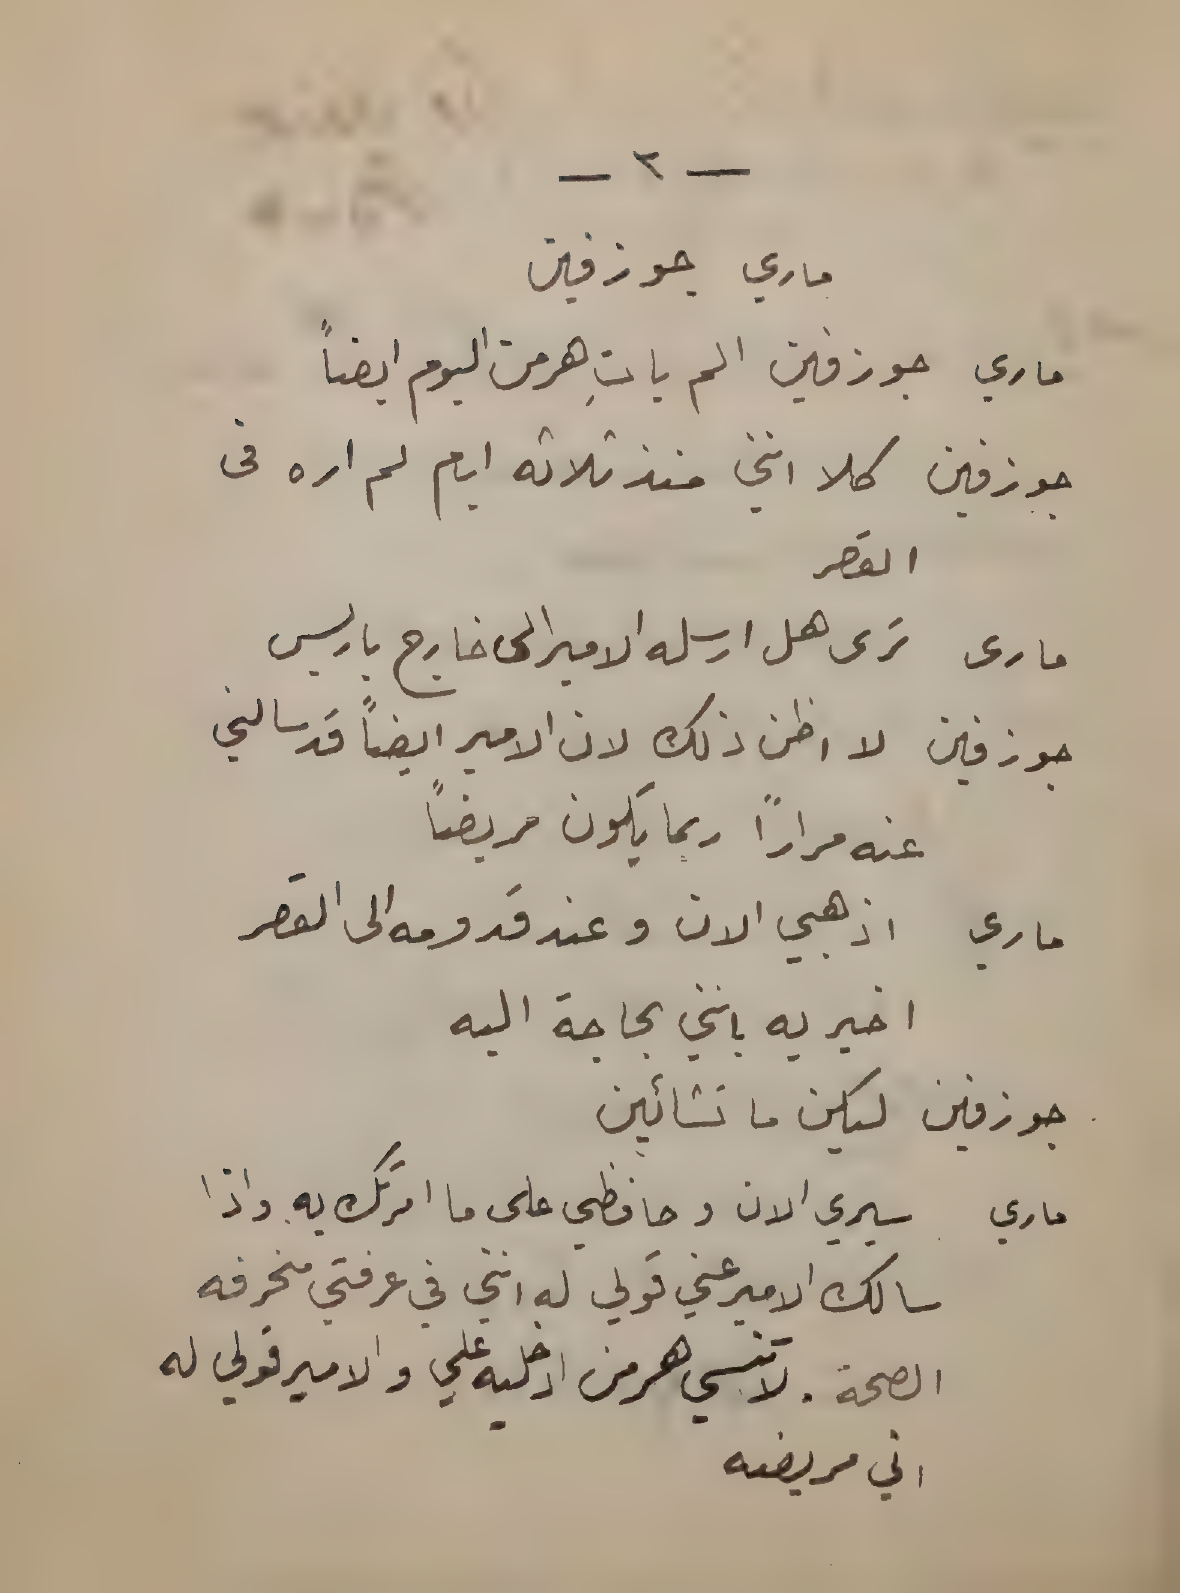 — ٢ —
ماري جوزفين
ماري جوزفين الم يات هرمن اليوم ايضاً
جوزفين كلا انني منذ ثلاثه ايام لم اره فى
القصر
مارى ترى هل ارسله الامير الى خارج باريس
جوزفين لا اظن ذلك لان الامير ايضاً قد سالني
عنه مراراً ربما يكون مريضاً
ماري اذهبي الان وعند قدومه الى القصر
اخبريه بانني بحاجة اليه
جوزفين ليكن ما تشائين
ماري سيري الان و حافظي على ما امرتك به واذا
سالك الامير عني قولي له انني في غرفتي منحرفه
الصحة . لا تنسي هرمن ادخليه علي والامير قولي له
اني مريضه